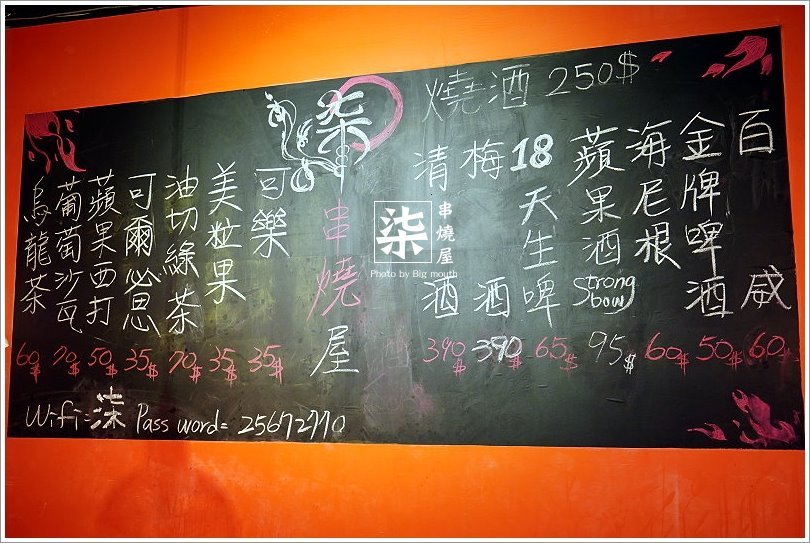 燒酒 250$
百威 60$
金牌啤酒 50$
海尼根 60$
蘋果酒 Strong
bow 95$
18天生啤 65$
梅酒 390$
清酒 390$
柒串燒屋
可樂 35$
美粒果 35$
油切綠茶 70$
可爾必思 35$
蘋果西打 50$
葡萄沙瓦 70$
烏龍茶 60$
Wifi=柒 Pass word= 25672770
柒 串燒屋
Photo by Big mouth